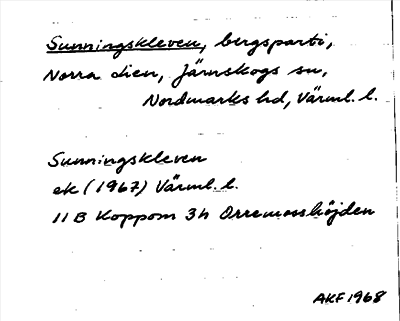 Sunningskleven, bergsparti,
Norra Lien, Järnskogs sn,
Nordmarks hd, Värml. l.
Sunningskleven
ek (1967) Värml. l.
11 B Koppom 3h Orremosshöjden
AKF 1968